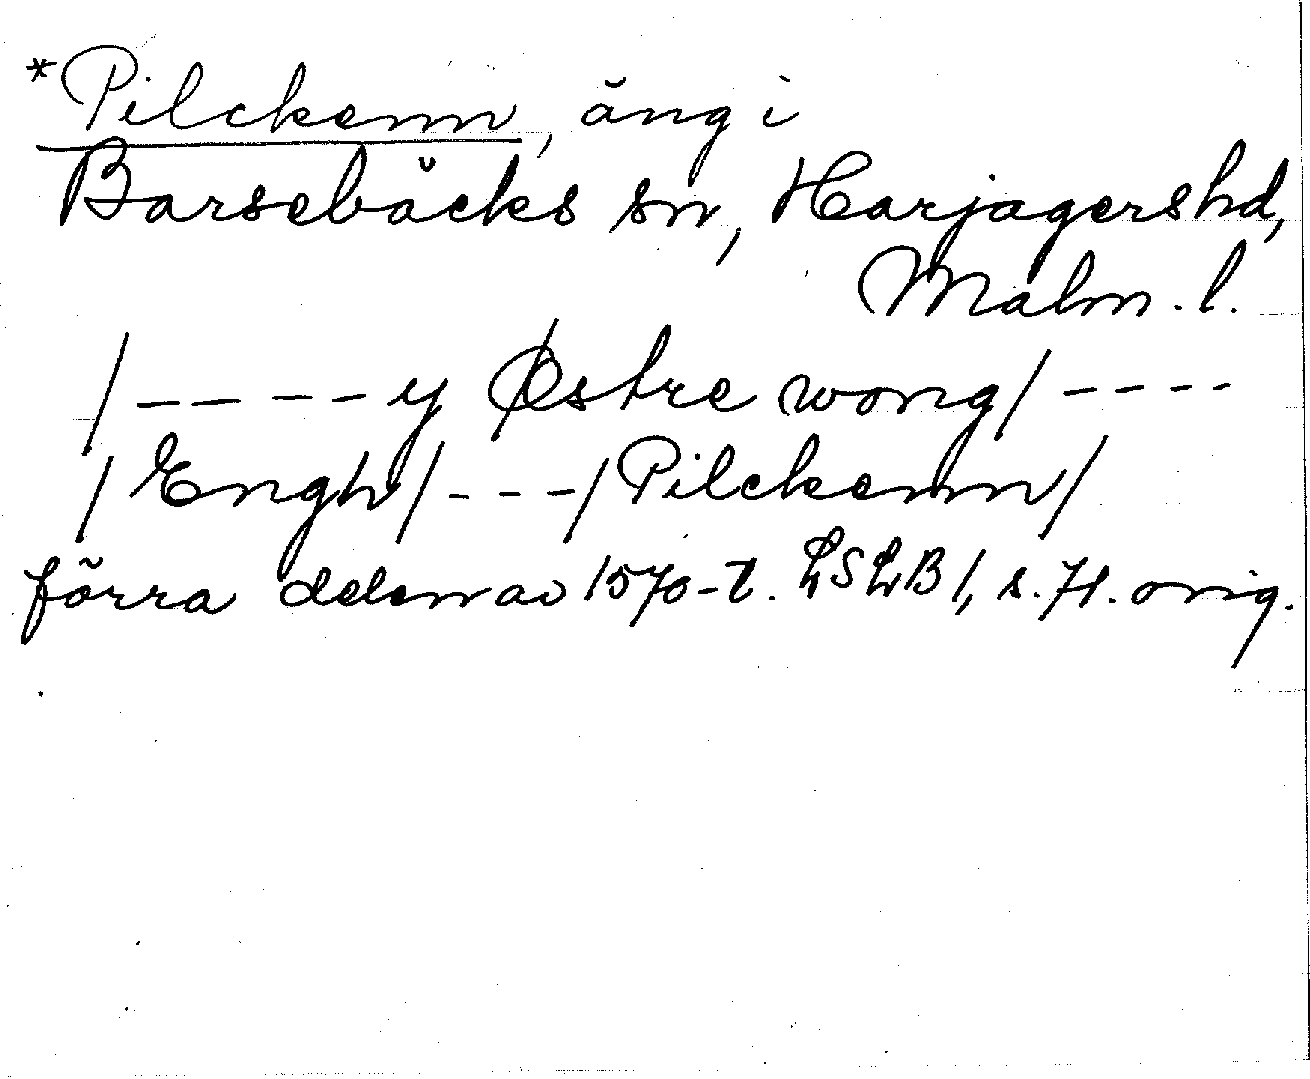 *Pilckenn, äng i
Barsebäcks sn, Harjagers hd,
Malm. l.
/----y Østre wong/----
/Engh/---/Pilckenn/
förra delen av 1570-t. LSLB I, s. 71. orig.